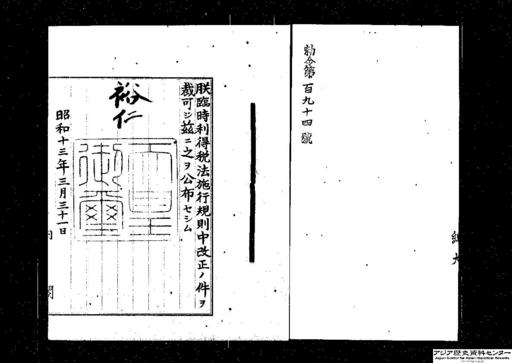 勅令第百九十四號
朕臨時利得税法施行規則中改正ノ件ヲ
裁可シ茲ニ之ヲ公布セシム
裕仁
天皇御璽
昭和十三年三月三十一日
内閣
アジア歴史資料センター
Japan Center for Asian Historical Records